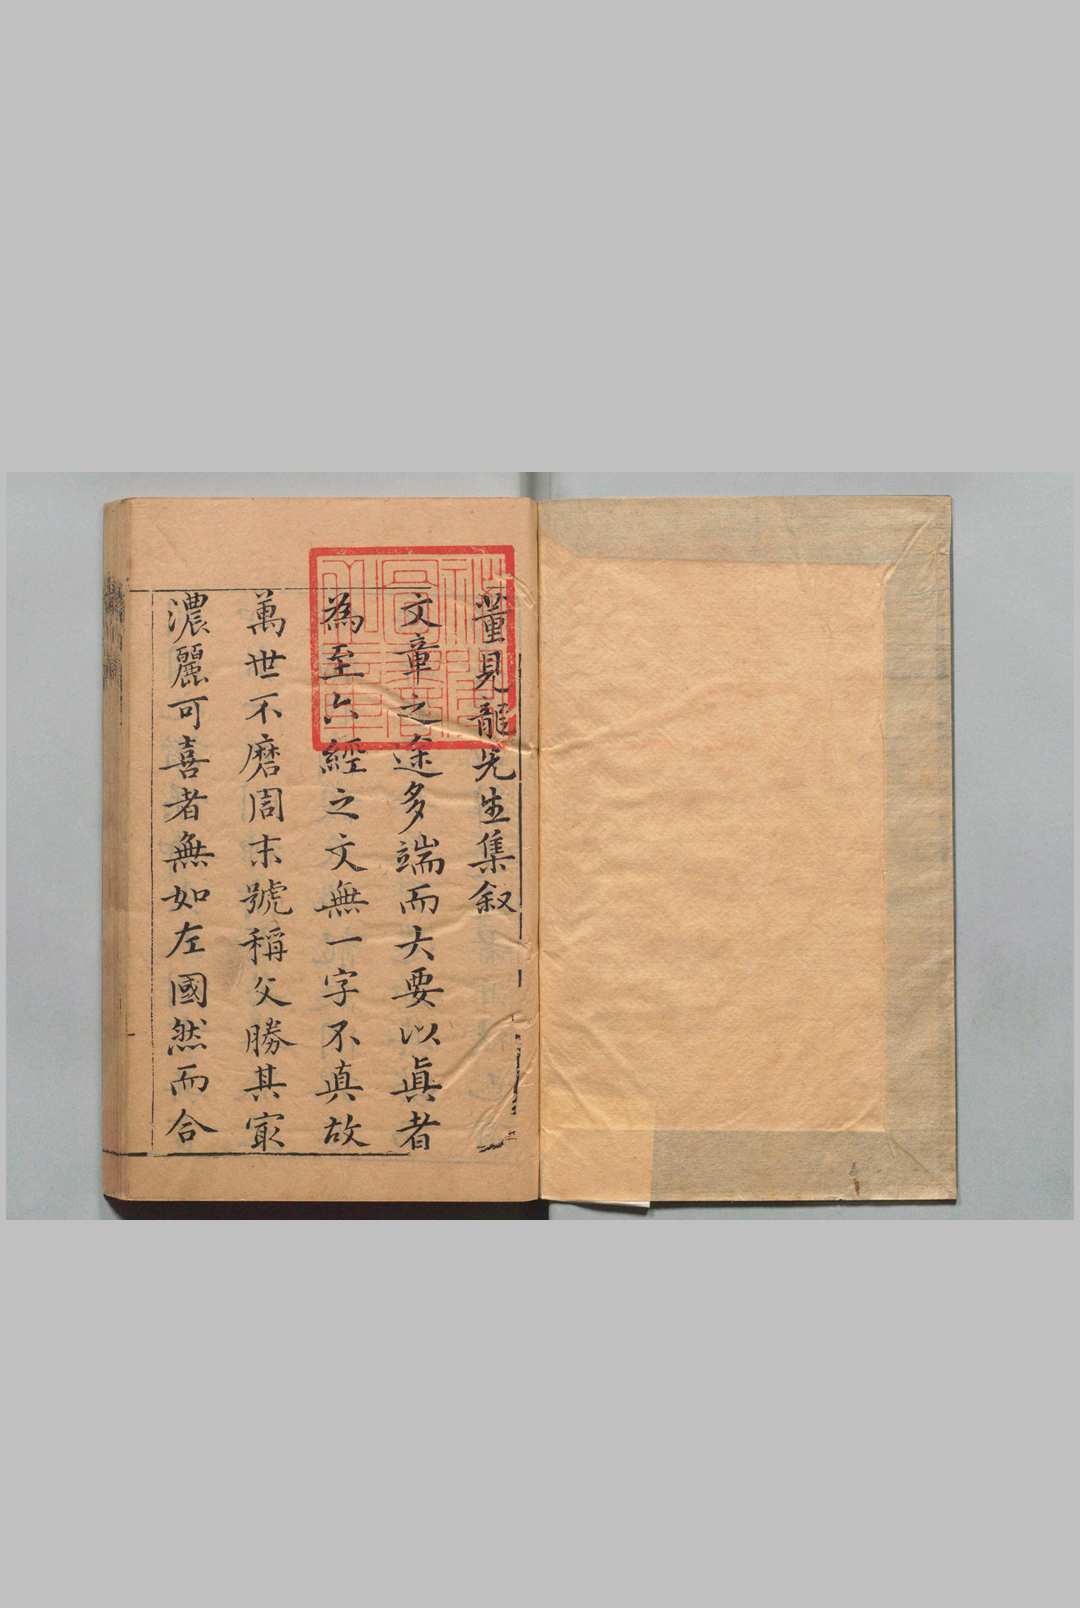 董見龍先生集叙
文章之途多端而大要以眞者
為至六經之文無一字不真故
萬世不磨周末號稱父勝其冣
濃麗可喜者無如左國然而合